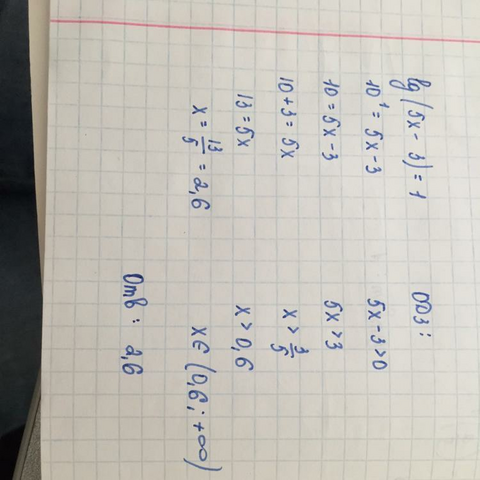 lg(5x - 3) = 1
10¹ = 5x - 3
10 = 5x - 3
10 + 3 = 5x
13 = 5x
x = 13/5 = 2,6
ОДЗ:
5x - 3 > 0
5x > 3
x > 3/5
x > 0,6
x ∈ (0,6; +∞)
Отв: 2,6